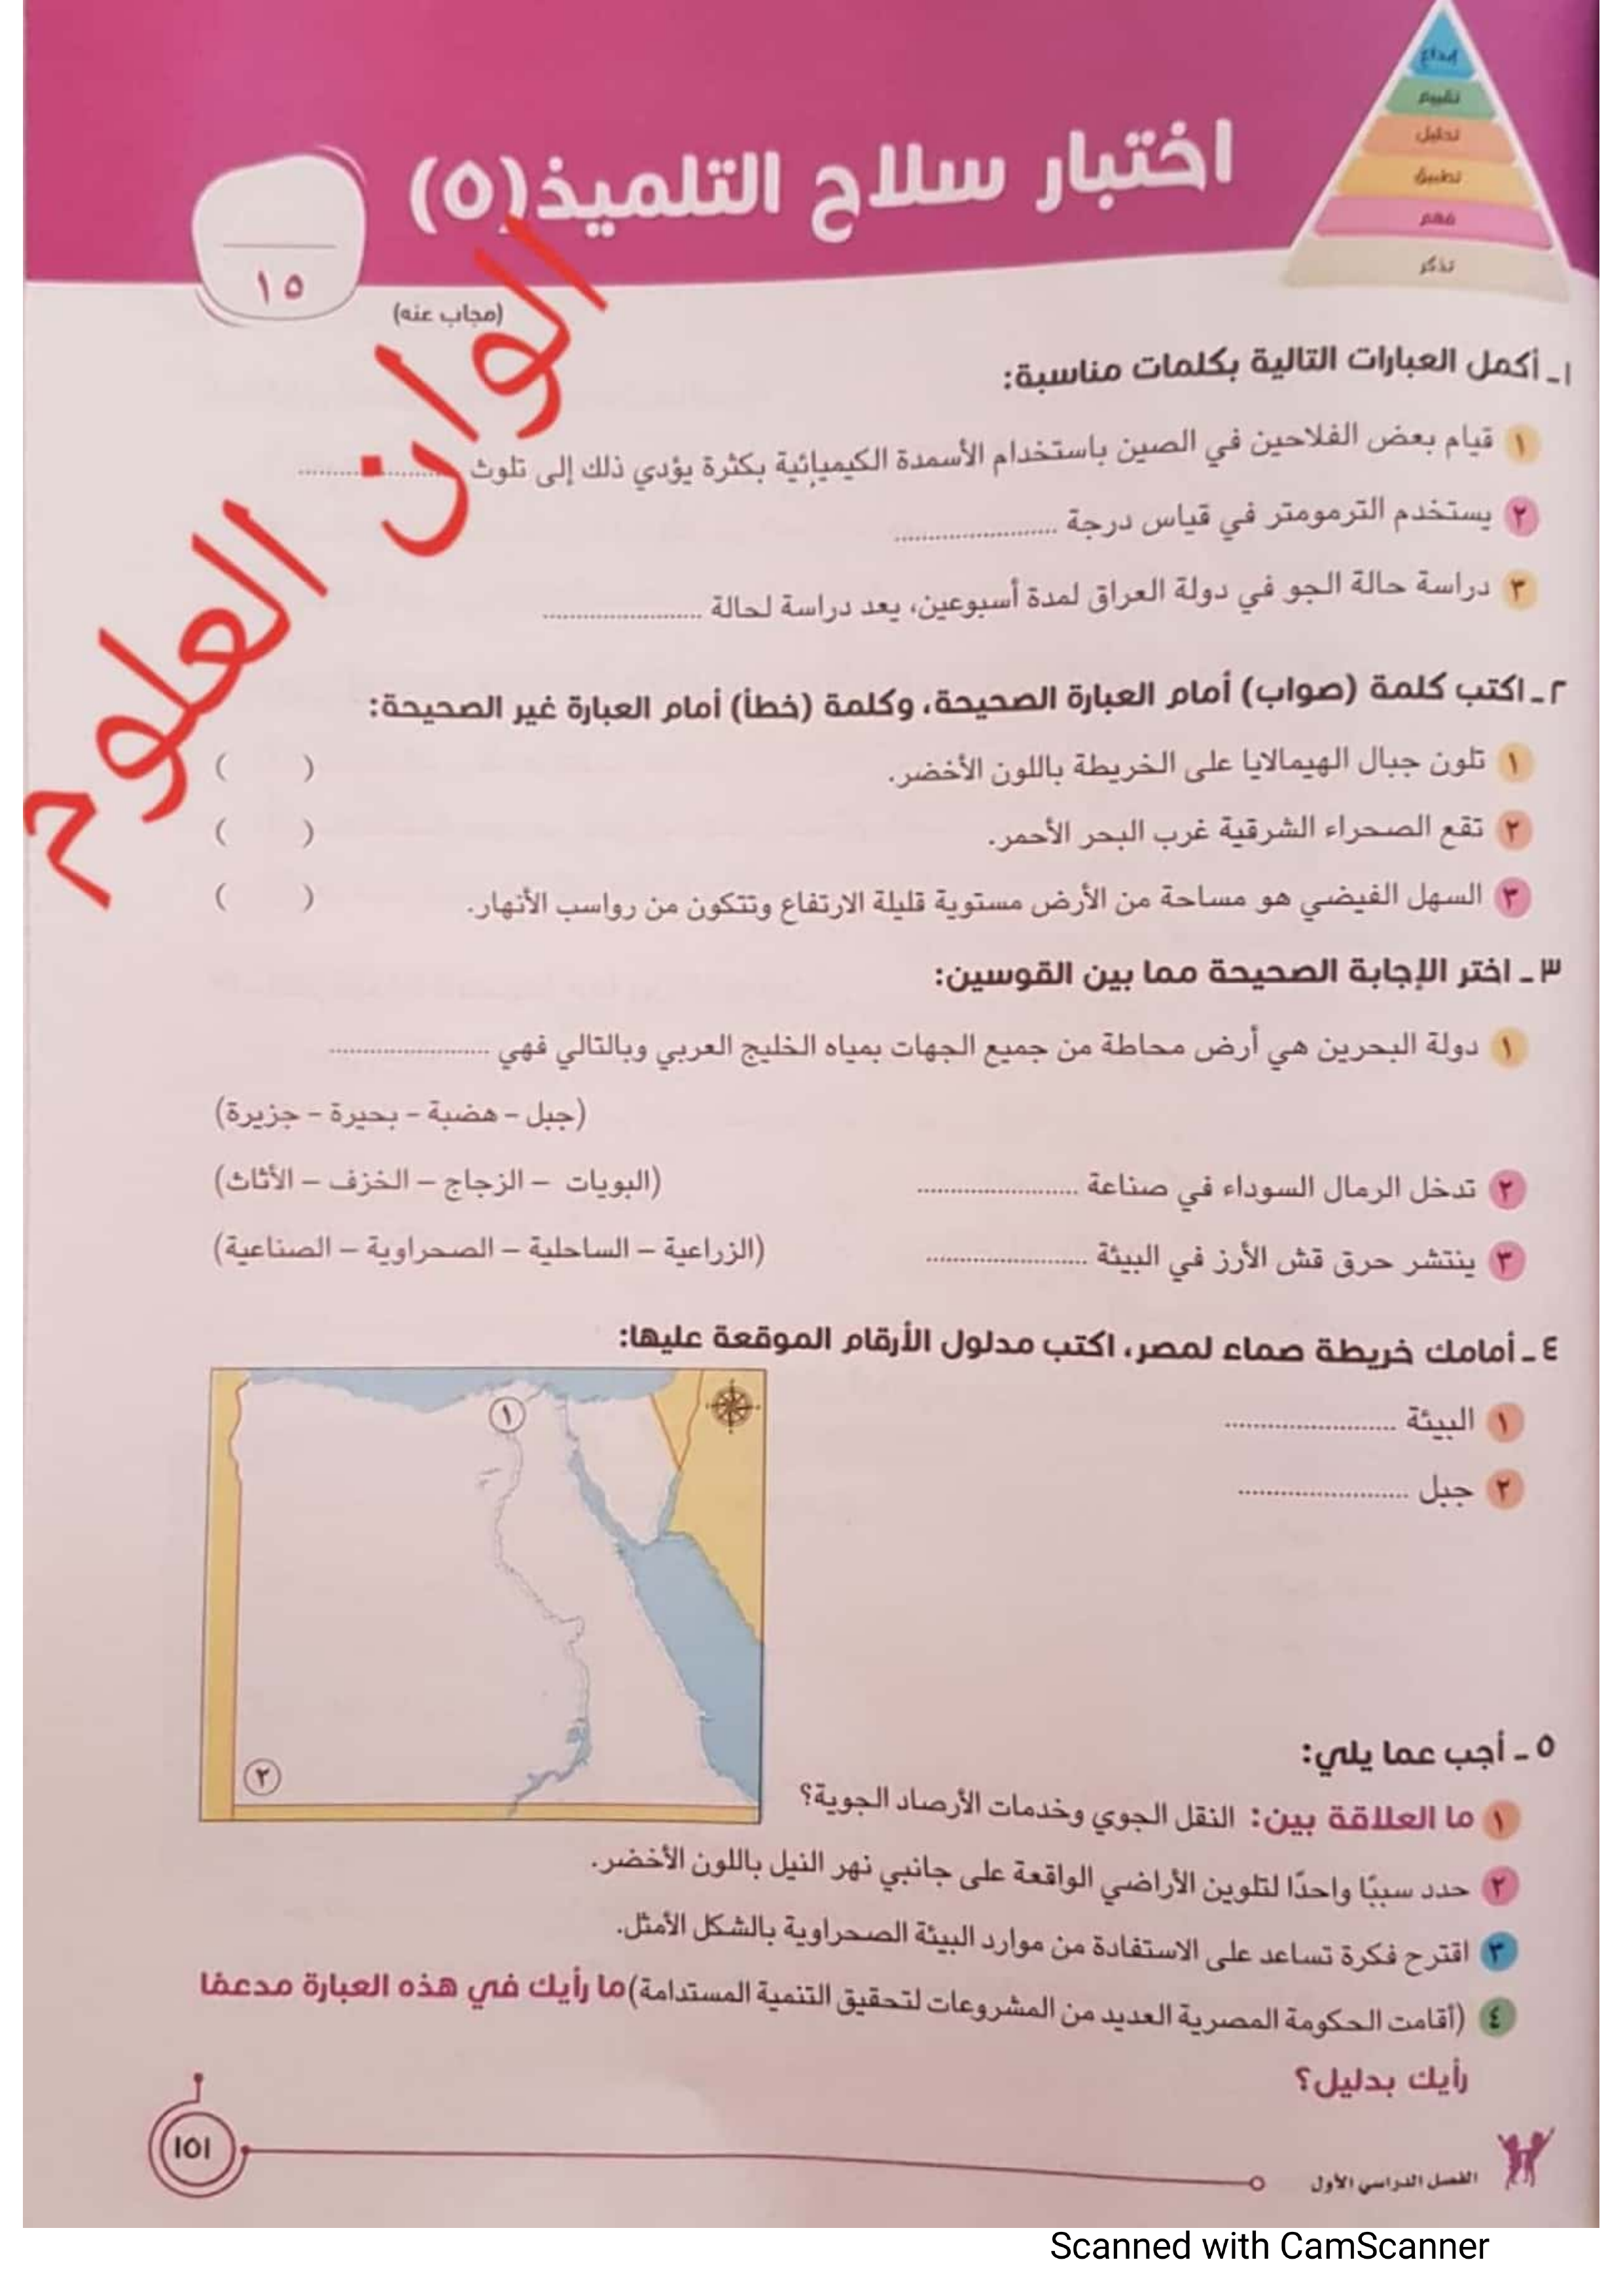 إبداع
تقييم
تحليل
تطبيق
فهم
تذكر
اختبار سلاح التلميذ (٥)
١٥
(مجاب عنه)
الوان العلوم
١ـ أكمل العبارات التالية بكلمات مناسبة:
١ قيام بعض الفلاحين في الصين باستخدام الأسمدة الكيميائية بكثرة يؤدي ذلك إلى تلوث ......................
٢ يستخدم الترمومتر في قياس درجة ......................
٣ دراسة حالة الجو في دولة العراق لمدة أسبوعين، يعد دراسة لحالة ......................
٢ـ اكتب كلمة (صواب) أمام العبارة الصحيحة، وكلمة (خطأ) أمام العبارة غير الصحيحة:
١ تلون جبال الهيمالايا على الخريطة باللون الأخضر. ( )
٢ تقع الصحراء الشرقية غرب البحر الأحمر. ( )
٣ السهل الفيضي هو مساحة من الأرض مستوية قليلة الارتفاع وتتكون من رواسب الأنهار. ( )
٣ـ اختر الإجابة الصحيحة مما بين القوسين:
١ دولة البحرين هي أرض محاطة من جميع الجهات بمياه الخليج العربي وبالتالي فهي ......................
(جبل – هضبة – بحيرة – جزيرة)
٢ تدخل الرمال السوداء في صناعة ...................... (البويات – الزجاج – الخزف – الأثاث)
٣ ينتشر حرق قش الأرز في البيئة ...................... (الزراعية – الساحلية – الصحراوية – الصناعية)
٤ـ أمامك خريطة صماء لمصر، اكتب مدلول الأرقام الموقعة عليها:
١ البيئة ......................
٢ جبل ......................
١
٢
٥ـ أجب عما يلي:
١ ما العلاقة بين: النقل الجوي وخدمات الأرصاد الجوية؟
٢ حدد سببًا واحدًا لتلوين الأراضي الواقعة على جانبي نهر النيل باللون الأخضر.
٣ اقترح فكرة تساعد على الاستفادة من موارد البيئة الصحراوية بالشكل الأمثل.
٤ (أقامت الحكومة المصرية العديد من المشروعات لتحقيق التنمية المستدامة) ما رأيك في هذه العبارة مدعمًا
رأيك بدليل؟
١٥١
الفصل الدراسي الأول
Scanned with CamScanner